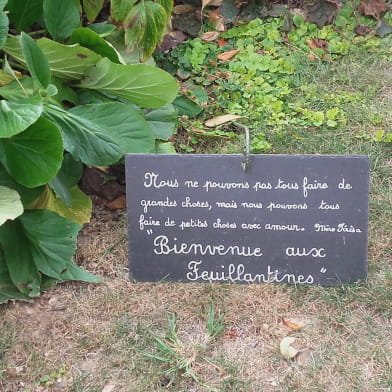 Nous ne pouvons pas tous faire de
grandes choses, mais nous pouvons tous
faire de petites choses avec amour. Mère Térésa
"Bienvenue aux
Feuillantines"